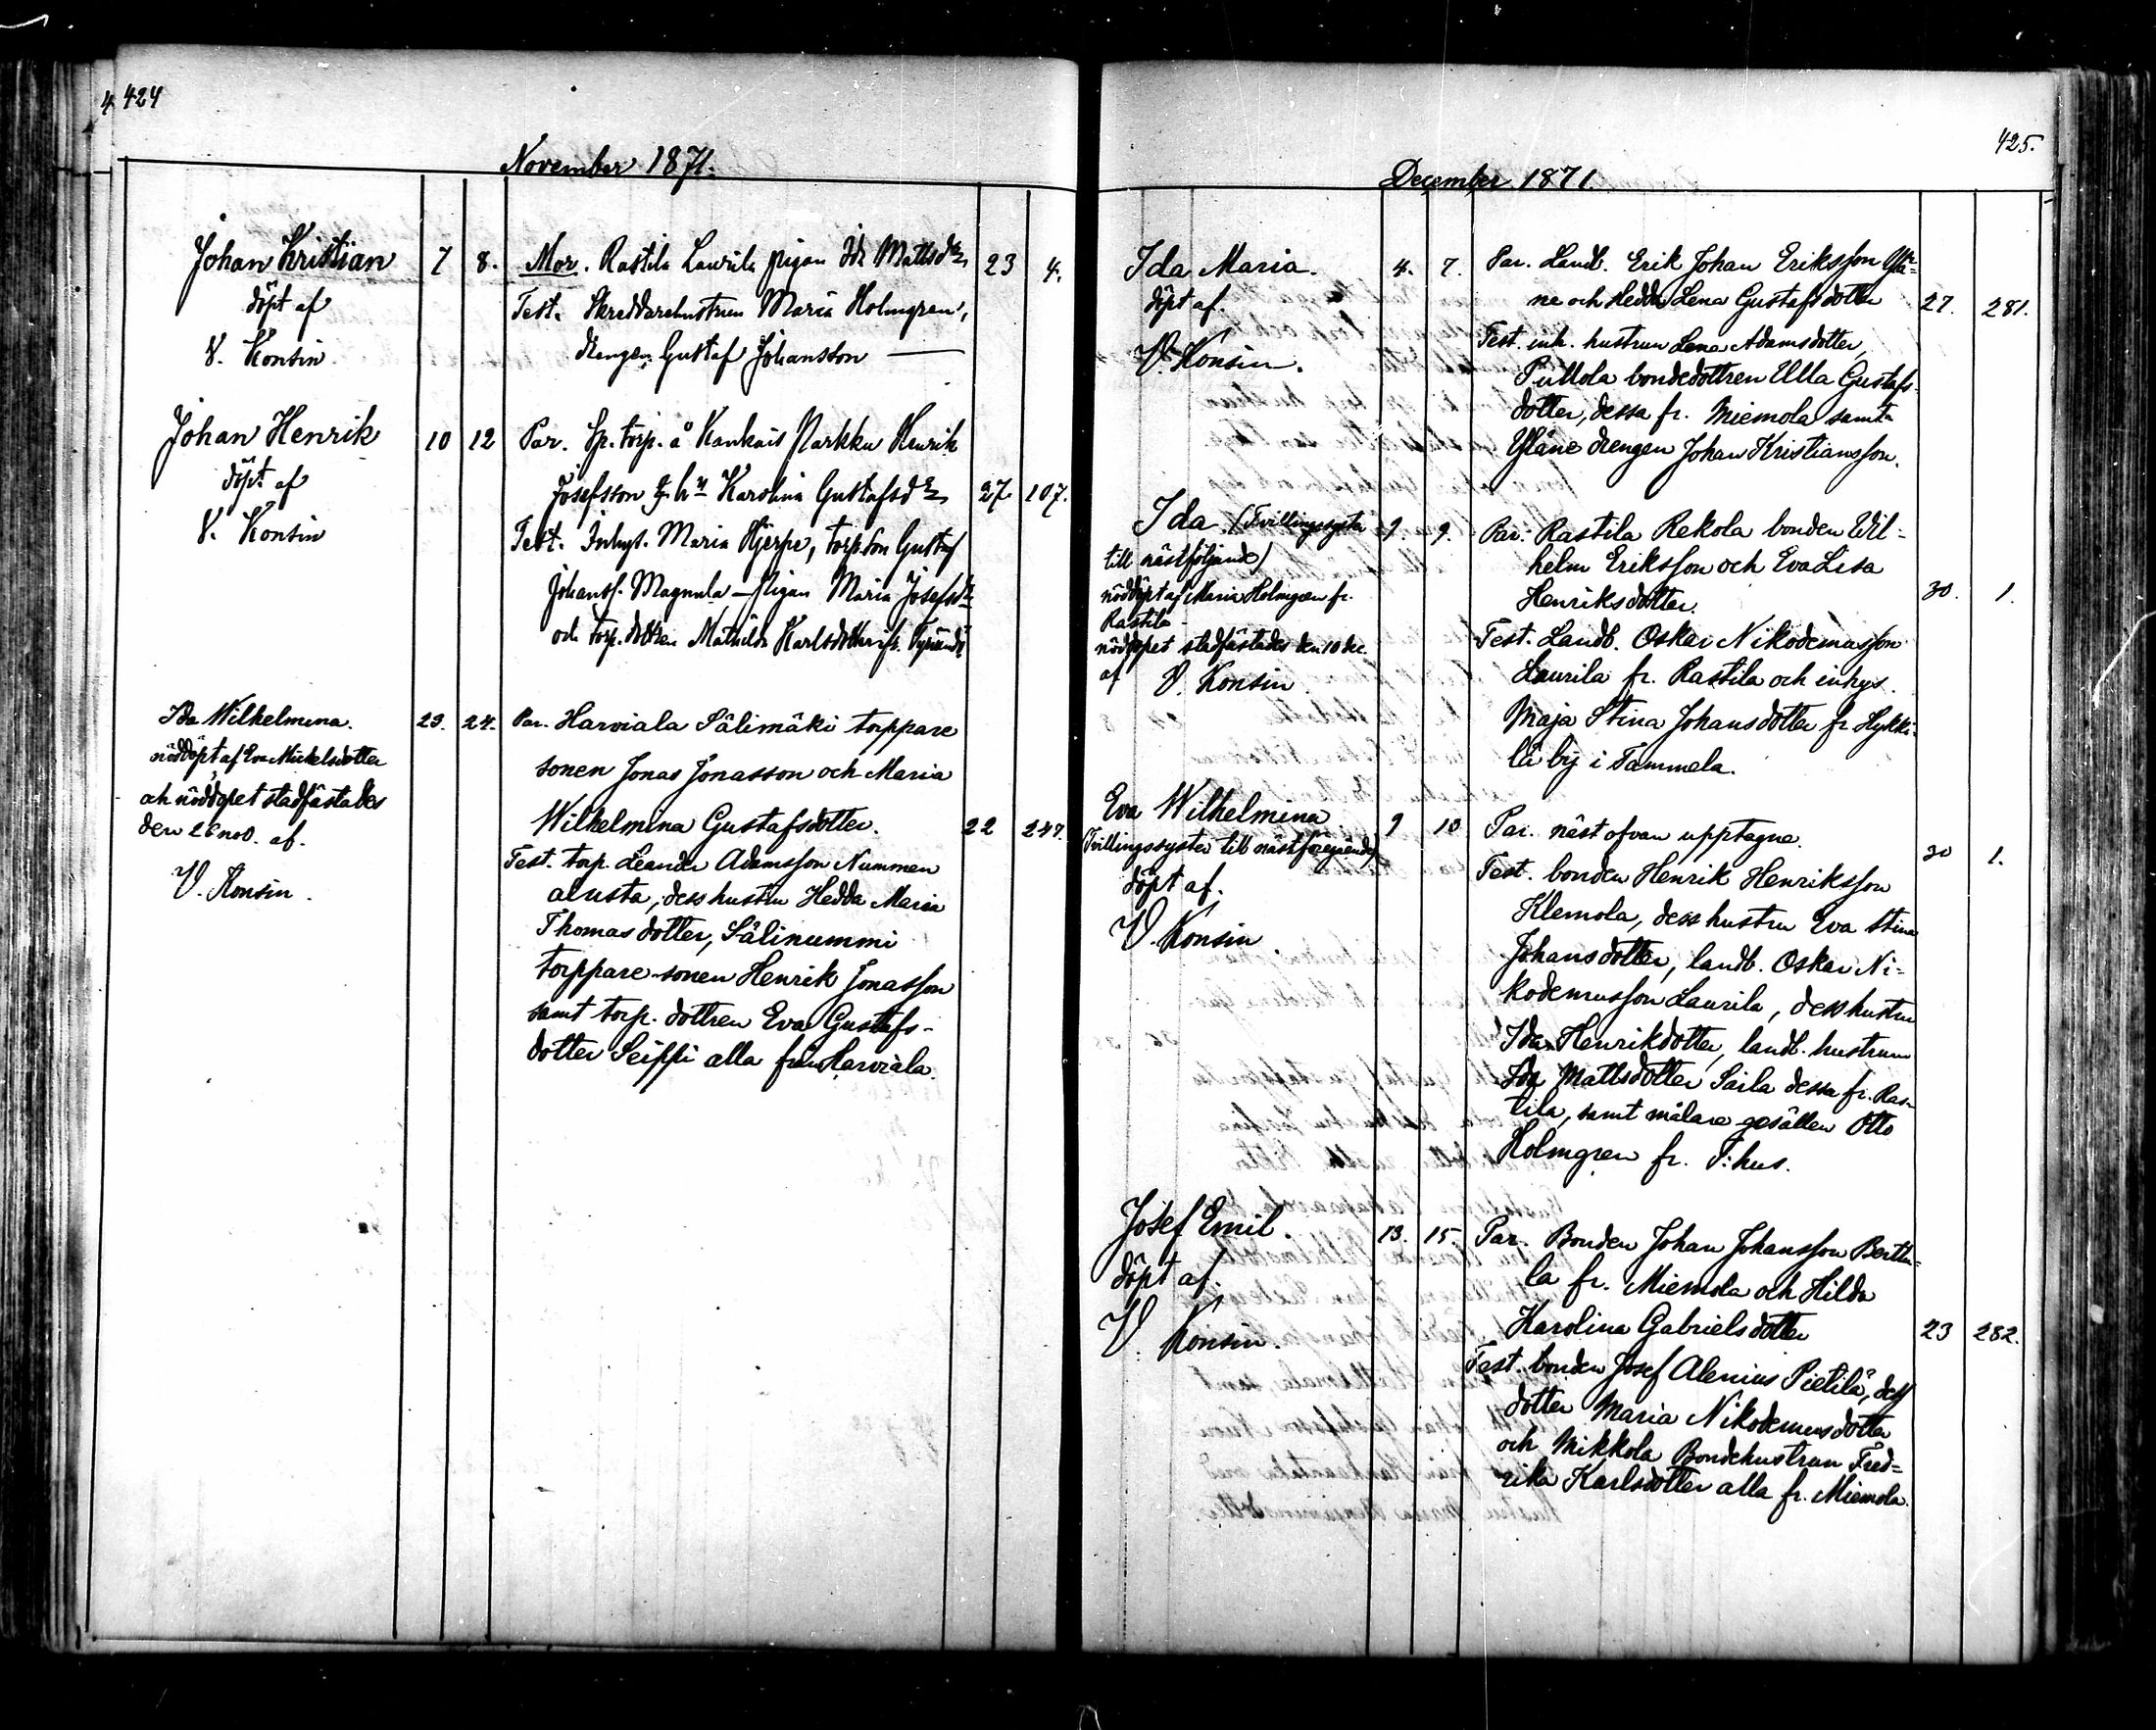 424
November 1871.
Johan Kristian 7 8. Mor. Rastila Laurila pigan Ida Mattsdr 23 4.
döpt af Test. Skreddarehustrun Maria Holmgren,
V. Konsin drengen Gustaf Johansson —
Johan Henrik 10 12 Par. Sp. torp. å Kankais Markku Henrik
döpt af Josefsson & hu Karolina Gustafsdr 27. 107.
V. Konsin Test. Inhys. Maria Hjerpe, torp. son Gustaf
Johanss. Magnula — Pigan Maria Josefsdr
och torp. dottren Mathilda Karlsdotter fr.
Ida Wilhelmina. 23. 24. Par. Harviala Sälimäki torppare
nöddöpt af Eva Mickelsdotter sonen Jonas Jonasson och Maria
och nöddopet stadfästades Wilhelmina Gustafsdotter. 22 247.
den 26 nov. af. Test. torp. Leander Adamsson Nummen
V. Konsin. alusta, dess hustru Hedda Maria
Thomasdotter, Sälinummi
torppare-sonen Henrik Jonasson
samt torp. dottren Eva Gustafs-
dotter Seippi alla från Harviala.
425.
December 1871
Ida Maria. 4. 7. Par. Landb. Erik Johan Eriksson Ylä=
döpt af. ne och Hedda Lena Gustafsdotter 27. 281.
V. Konsin. Test. inh. hustrun Lena Adamsdotter,
Pullola bondedottren Ulla Gustafs-
dotter, dessa fr. Miemola samt
Yläne drengen Johan Kristiansson.
Ida (Tvillingssyster 9. 9. Par. Rastila Rekola bonden Wil-
till nästföljande) helm Eriksson och Eva Lisa
nöddöpt af Maria Holmgren fr. Henriksdotter. 30. 1.
Rastila
nöddopet stadfästades den 10 dec. Test. Landb. Oskar Nikodemusson
af V. Konsin. Laurila fr. Rastila och inhys.
Maja Stina Johansdotter fr. Hykki-
lä by i Tammela.
Eva Wilhelmina 9 10 Par. näst ofvan upptagne.
(Tvillingssyster till nästföregående) 30 1.
döpt af. Test. bonden Henrik Henriksson
V. Konsin. Klemola, dess hustru Eva Stina
Johansdotter, landb. Oskar Ni=
kodemusson Laurila, dess hustru
Ida Henrikdotter, landb. hustrun
Ida Mattsdotter Saila dessa fr. Ras-
tila, samt målare gesällen Otto
Holmgren fr. T:hus.
Josef Emil. 13. 15. Par. Bonden Johan Johansson Berttu=
döpt af. la fr. Miemola och Hilda
V. Konsin. Karolina Gabrielsdotter 23 282.
Test. bonden Josef Alenius Pietilä, dess
dotter Maria Nikodemusdotter
och Mikkola Bondehustrun Fred=
rika Karlsdotter alla fr. Miemola.